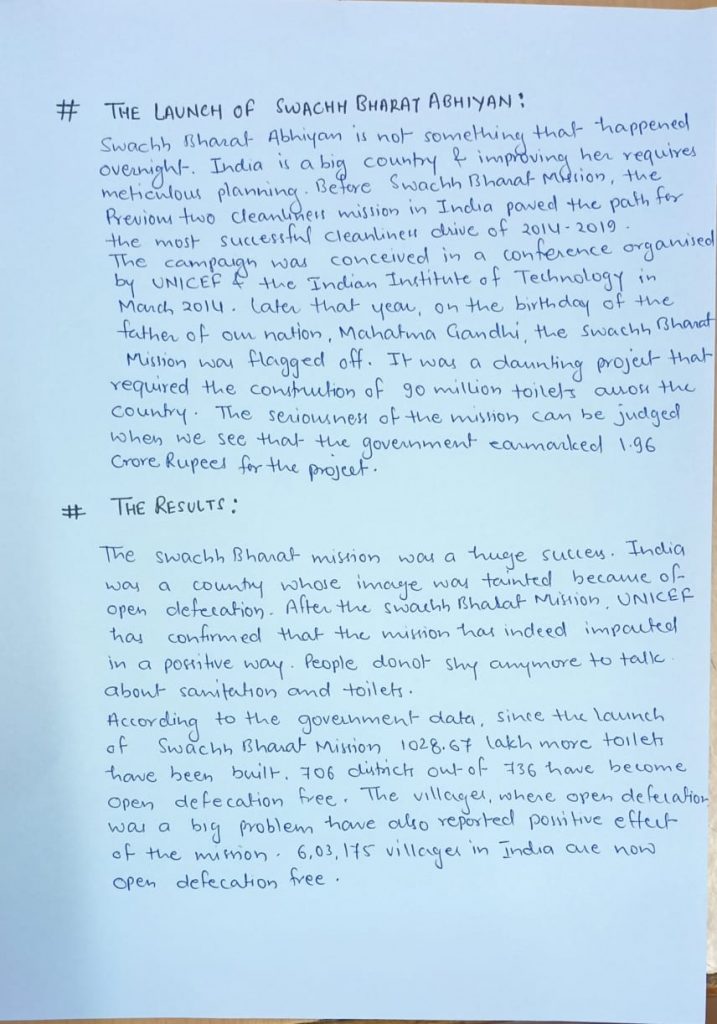 # THE LAUNCH OF SWACHH BHARAT ABHIYAN:
Swachh Bharat Abhiyan is not something that happened
overnight. India is a big country & improving her requires
meticulous planning. Before Swachh Bharat Mission, the
Previous two cleanliness mission in India paved the path for
the most successful cleanliness drive of 2014-2019.
The campaign was conceived in a conference organised
by UNICEF & the Indian Institute of Technology in
March 2014. Later that year, on the birthday of the
father of our nation, Mahatma Gandhi, the Swachh Bharat
Mission was flagged off. It was a daunting project that
required the construction of 90 million toilets across the
country. The seriousness of the mission can be judged
when we see that the government earmarked 1.96
Crore Rupees for the project.
# THE RESULTS:
The swachh Bharat mission was a huge success. India
was a country whose image was tainted because of
open defecation. After the swachh Bharat Mission, UNICEF
has confirmed that the mission has indeed impacted
in a positive way. People donot shy anymore to talk
about sanitation and toilets.
According to the government data, since the launch
of Swachh Bharat Mission 1028.67 lakh more toilets
have been built. 706 districts out of 736 have become
open defecation free. The villages, where open defecation
was a big problem have also reported positive effect
of the mission. 6,03,175 villages in India are now
open defecation free.